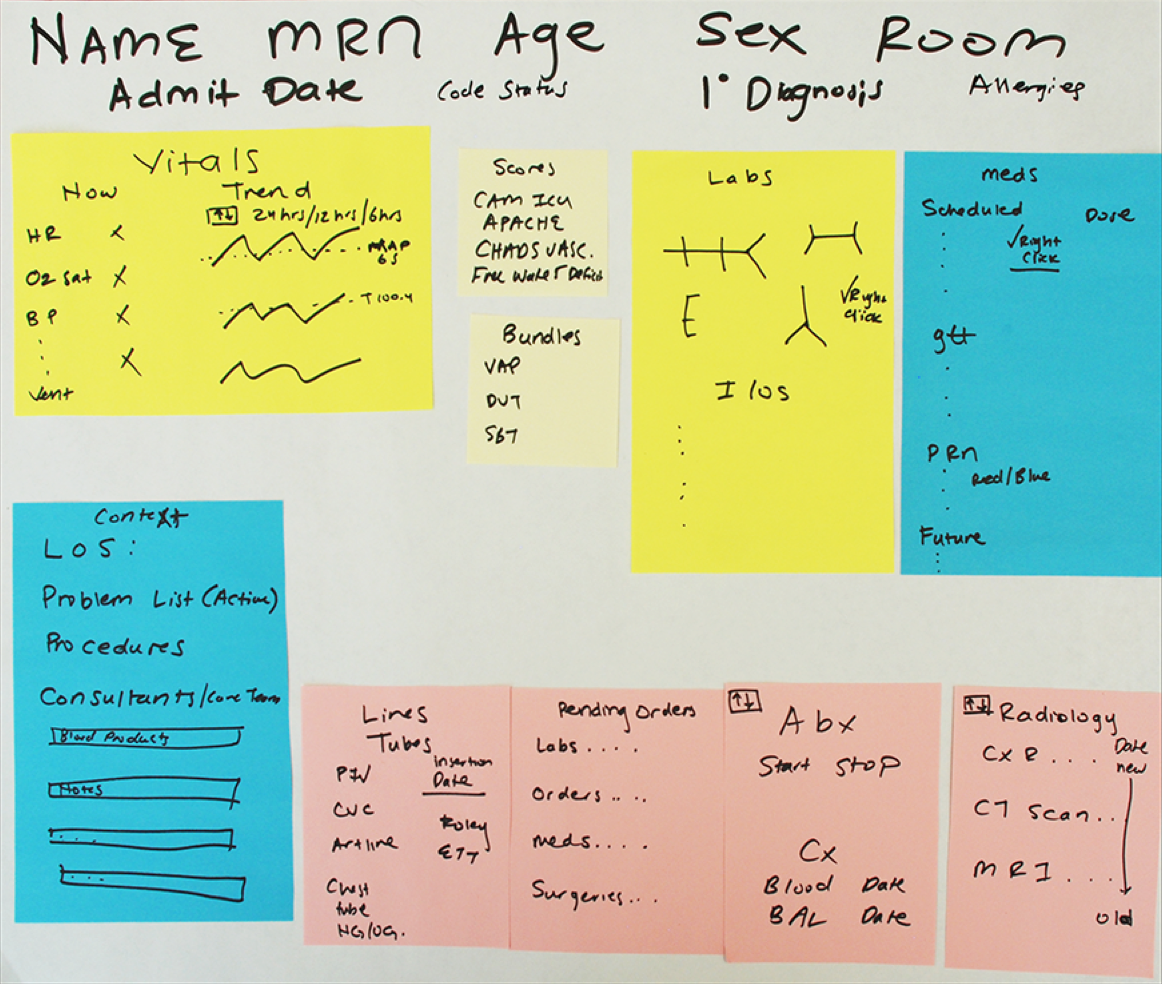 NAME MRN Age Sex Room
Admit Date Code Status 1° Diagnosis Allergies
Vitals
Now Trend
↑↓ 24hrs/12hrs/6hrs
HR X
MAP 65
O2 Sat X
T 100.4
BP X
X
Vent
Scores
CAM ICU
APACHE
CHADS VASC.
Free Water Deficit
Bundles
VAP
DVT
SBT
Labs
√Right
Click
I/Os
meds
Scheduled Dose
√Right
Click
gtt
PRN
Red/Blue
Future
Context
LOS:
Problem List (Active)
Procedures
Consultants/Care Team
Blood Products
Notes
Lines
Tubes
PIV Insertion
Date
CVC
Foley
Art line ETT
Chest
tube
NG/OG.
Pending Orders
Labs....
Orders....
Meds....
Surgeries...
↑↓
Abx
Start Stop
Cx
Blood Date
BAL Date
↑↓ Radiology
CxR... Date
new
CT Scan..
MRI....
old